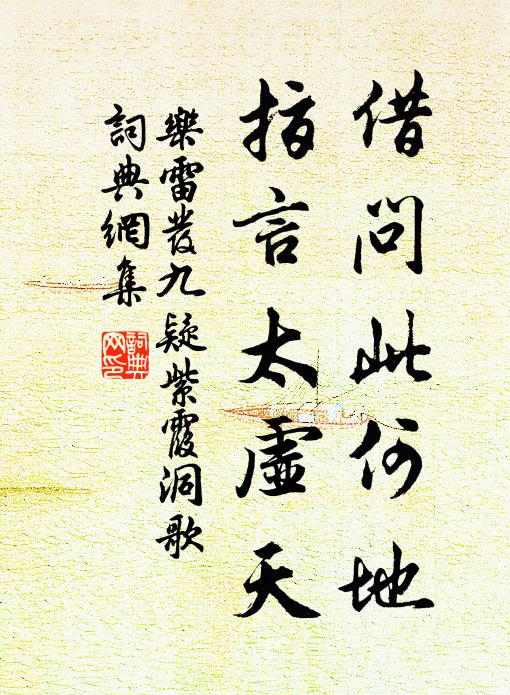 借問此何地
指言太虛天
樂雷發九疑紫霞洞歌
詞典網集
詞典網印